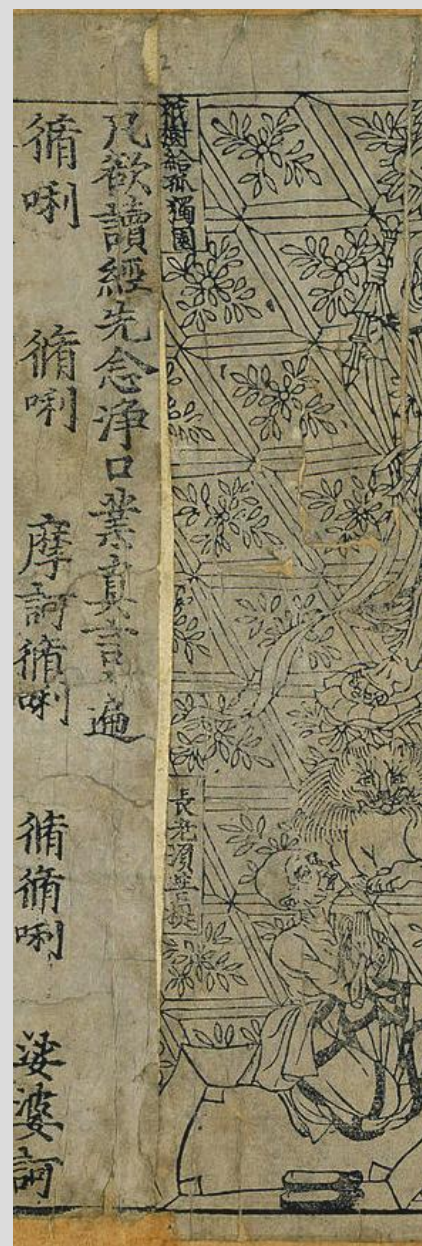 祇樹給孤獨園
長老須菩提
凡欲讀經先念淨口業真言一遍
脩唎　脩唎　摩訶脩唎　脩脩唎　娑婆訶